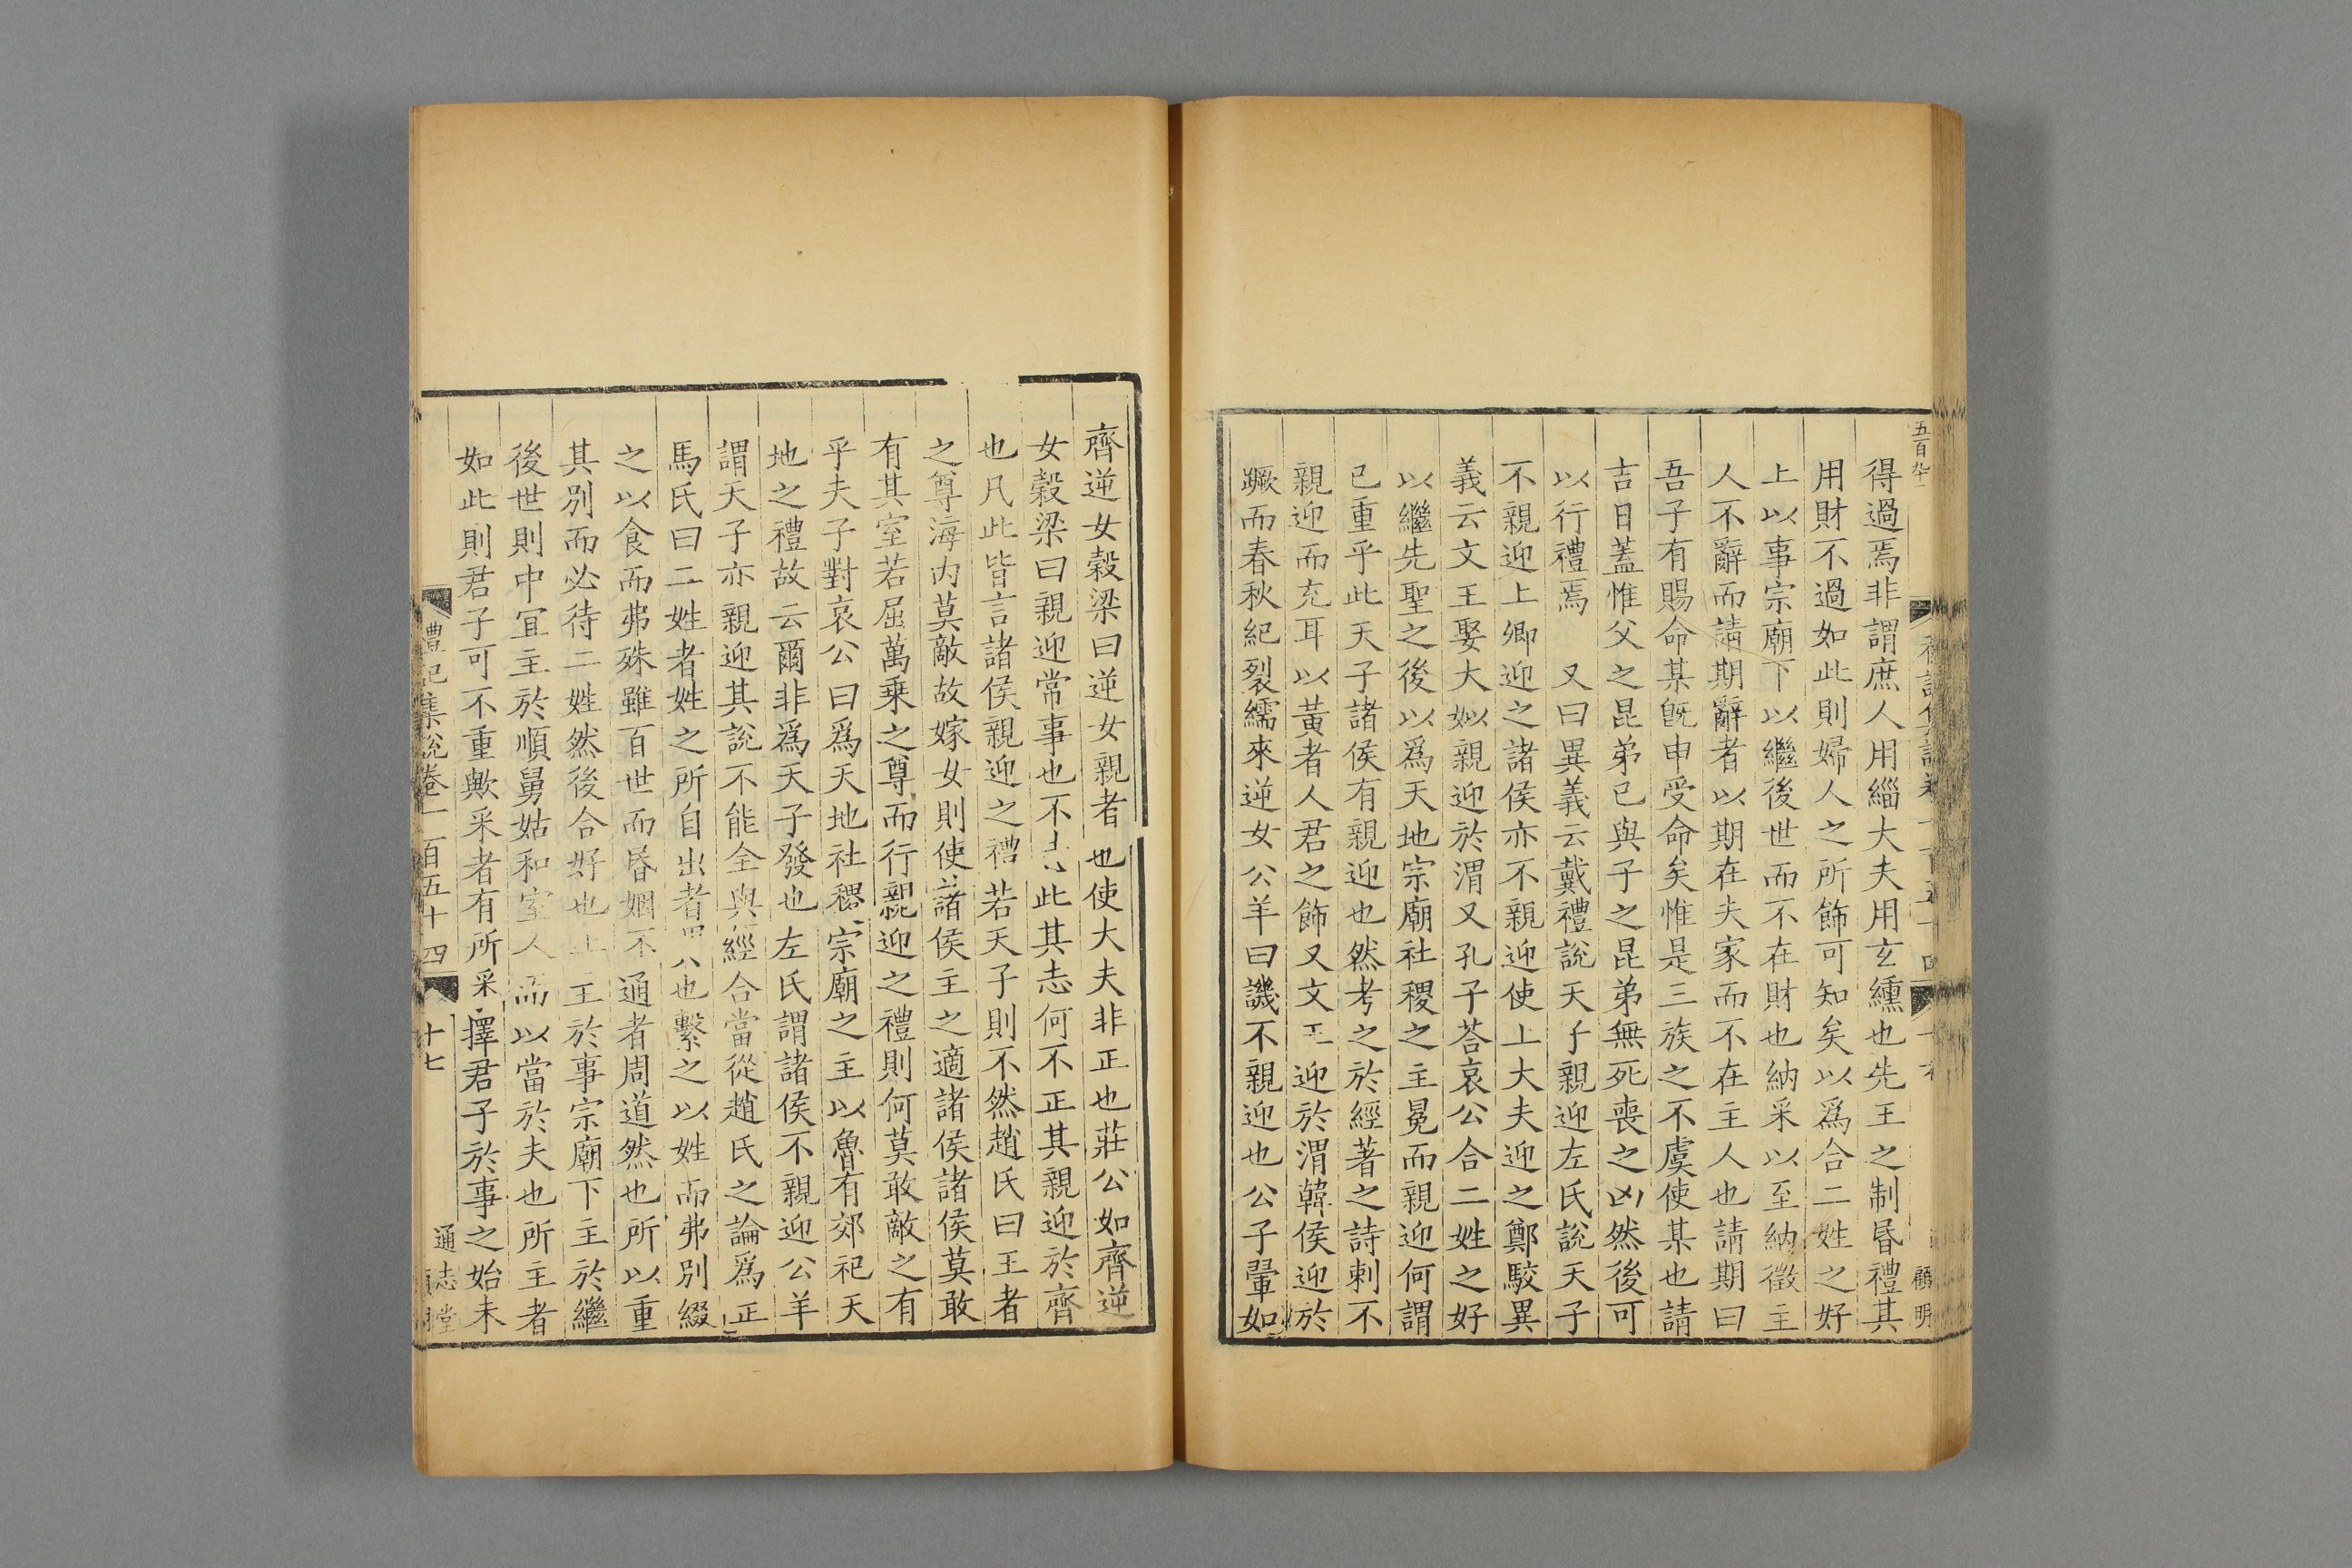 得過焉非謂庶人用緇大夫用玄纁也先王之制昏禮其
用財不過如此則婦人之所飾可知矣以爲合二姓之好
上以事宗廟下以繼後世而不在財也納采以至納徵主
人不辭而請期辭者以期在夫家而不在主人也請期曰
吾子有賜命某旣申受命矣惟是三族之不虞使某也請
吉日蓋惟父之昆弟已與子之昆弟無死喪之凶然後可
以行禮焉 又曰異義云戴禮說天子親迎左氏說天子
不親迎上卿迎之諸侯亦不親迎使上大夫迎之鄭駮異
義云文王娶大姒親迎於渭又孔子荅哀公合二姓之好
以繼先聖之後以爲天地宗廟社稷之主冕而親迎何謂
已重乎此天子諸侯有親迎也然考之於經著之詩刺不
親迎而充耳以黃者人君之飾又文王迎於渭韓侯迎於
蹶而春秋紀裂繻來逆女公羊曰譏不親迎也公子翬如
五百九十
顧明
齊逆女穀梁曰逆女親者也使大夫非正也莊公如齊逆
女穀梁曰親迎常事也不志此其志何不正其親迎於齊
也凡此皆言諸侯親迎之禮若天子則不然趙氏曰王者
之尊海內莫敵故嫁女則使諸侯主之適諸侯諸侯莫敢
有其室若屈萬乗之尊而行親迎之禮則何莫敢敵之有
乎夫子對哀公曰爲天地社稷宗廟之主以魯有郊祀天
地之禮故云爾非爲天子發也左氏謂諸侯不親迎公羊
謂天子亦親迎其說不能全與經合當從趙氏之論爲正
馬氏曰二姓者姓之所自出者異也繫之以姓而弗別綴
之以食而弗殊雖百世而昏姻不通者周道然也所以重
其別而必待二姓然後合好也上主於事宗廟下主於繼
後世則中宜主於順舅姑和室人而以當於夫也所主者
如此則君子可不重歟采者有所采擇君子於事之始未
禮記集說卷一百五十四
十七
通志堂